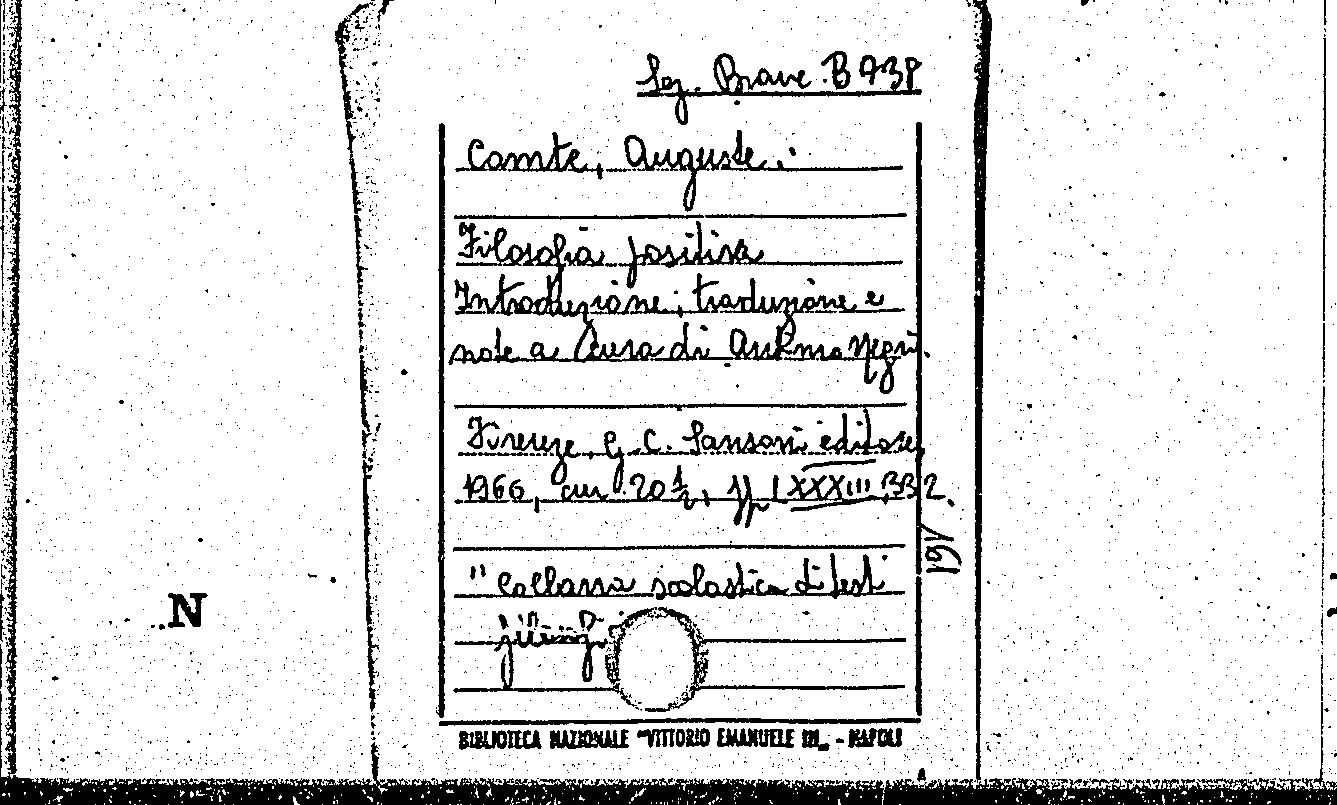 Sez. Brave B 738
Comte, Auguste.
Filosofia positiva
Introduzione, traduzione e
note a cura di Antimo Negri.
Firenze, G. C. Sansoni editore,
1966, cm 20½, pp LXXXIII, 332.
161
"Collana scolastica di testi
N
BIBLIOTECA NAZIONALE "VITTORIO EMANUELE III„ - NAPOLI